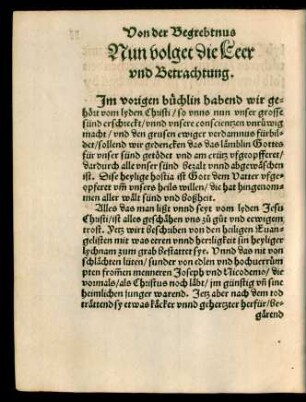 Von der Begrebtnus
Nun volget die Leer
vnd Betrachtung.
Im vorigen büchlin habend wir ge-
hört vom lyden Christi/ so vnns nun vnser grosse
sünd erschreckt/ vnnd vnsere conscientzen vnrüwig
macht/ vnd den grusen ewiger verdamnus fürbil-
det/ sollend wir gedencken das das lämblin Gottes
für vnser sünd getödet vnd am crütz vfgropfferet/
dardurch alle vnser sünd bezalt vnnd abgewäschen
ist. Dise heylige hostia ist Gott dem Vatter vfge-
opferet vm̄ vnsers heils willen/ die hat hingenom-
men aller wält sünd vnd boßheit.
Alles das man lißt vnnd seyt vom lyden Jesu
Christi/ ist alles geschähen vns zů gůt vnd ewigem
trost. Jetz wirt beschriben von den heiligen Euan-
gelisten mit was eeren vnnd herrligkeit sin heyliger
lychnam zum grab bestattet sye. Vnnd das nit von
schlächten lüten/ sunder von edlen vnd hochuerrüm
pten frommen menneren Joseph vnd Nicodemo/ die
vormals/ als Christus noch läbt/ jm günstig vn̄ sine
heimlichen junger warend. Jetz aber nach dem tod
trättend sy etwas käcker vnnd gehertzter herfür/ be-
gärend